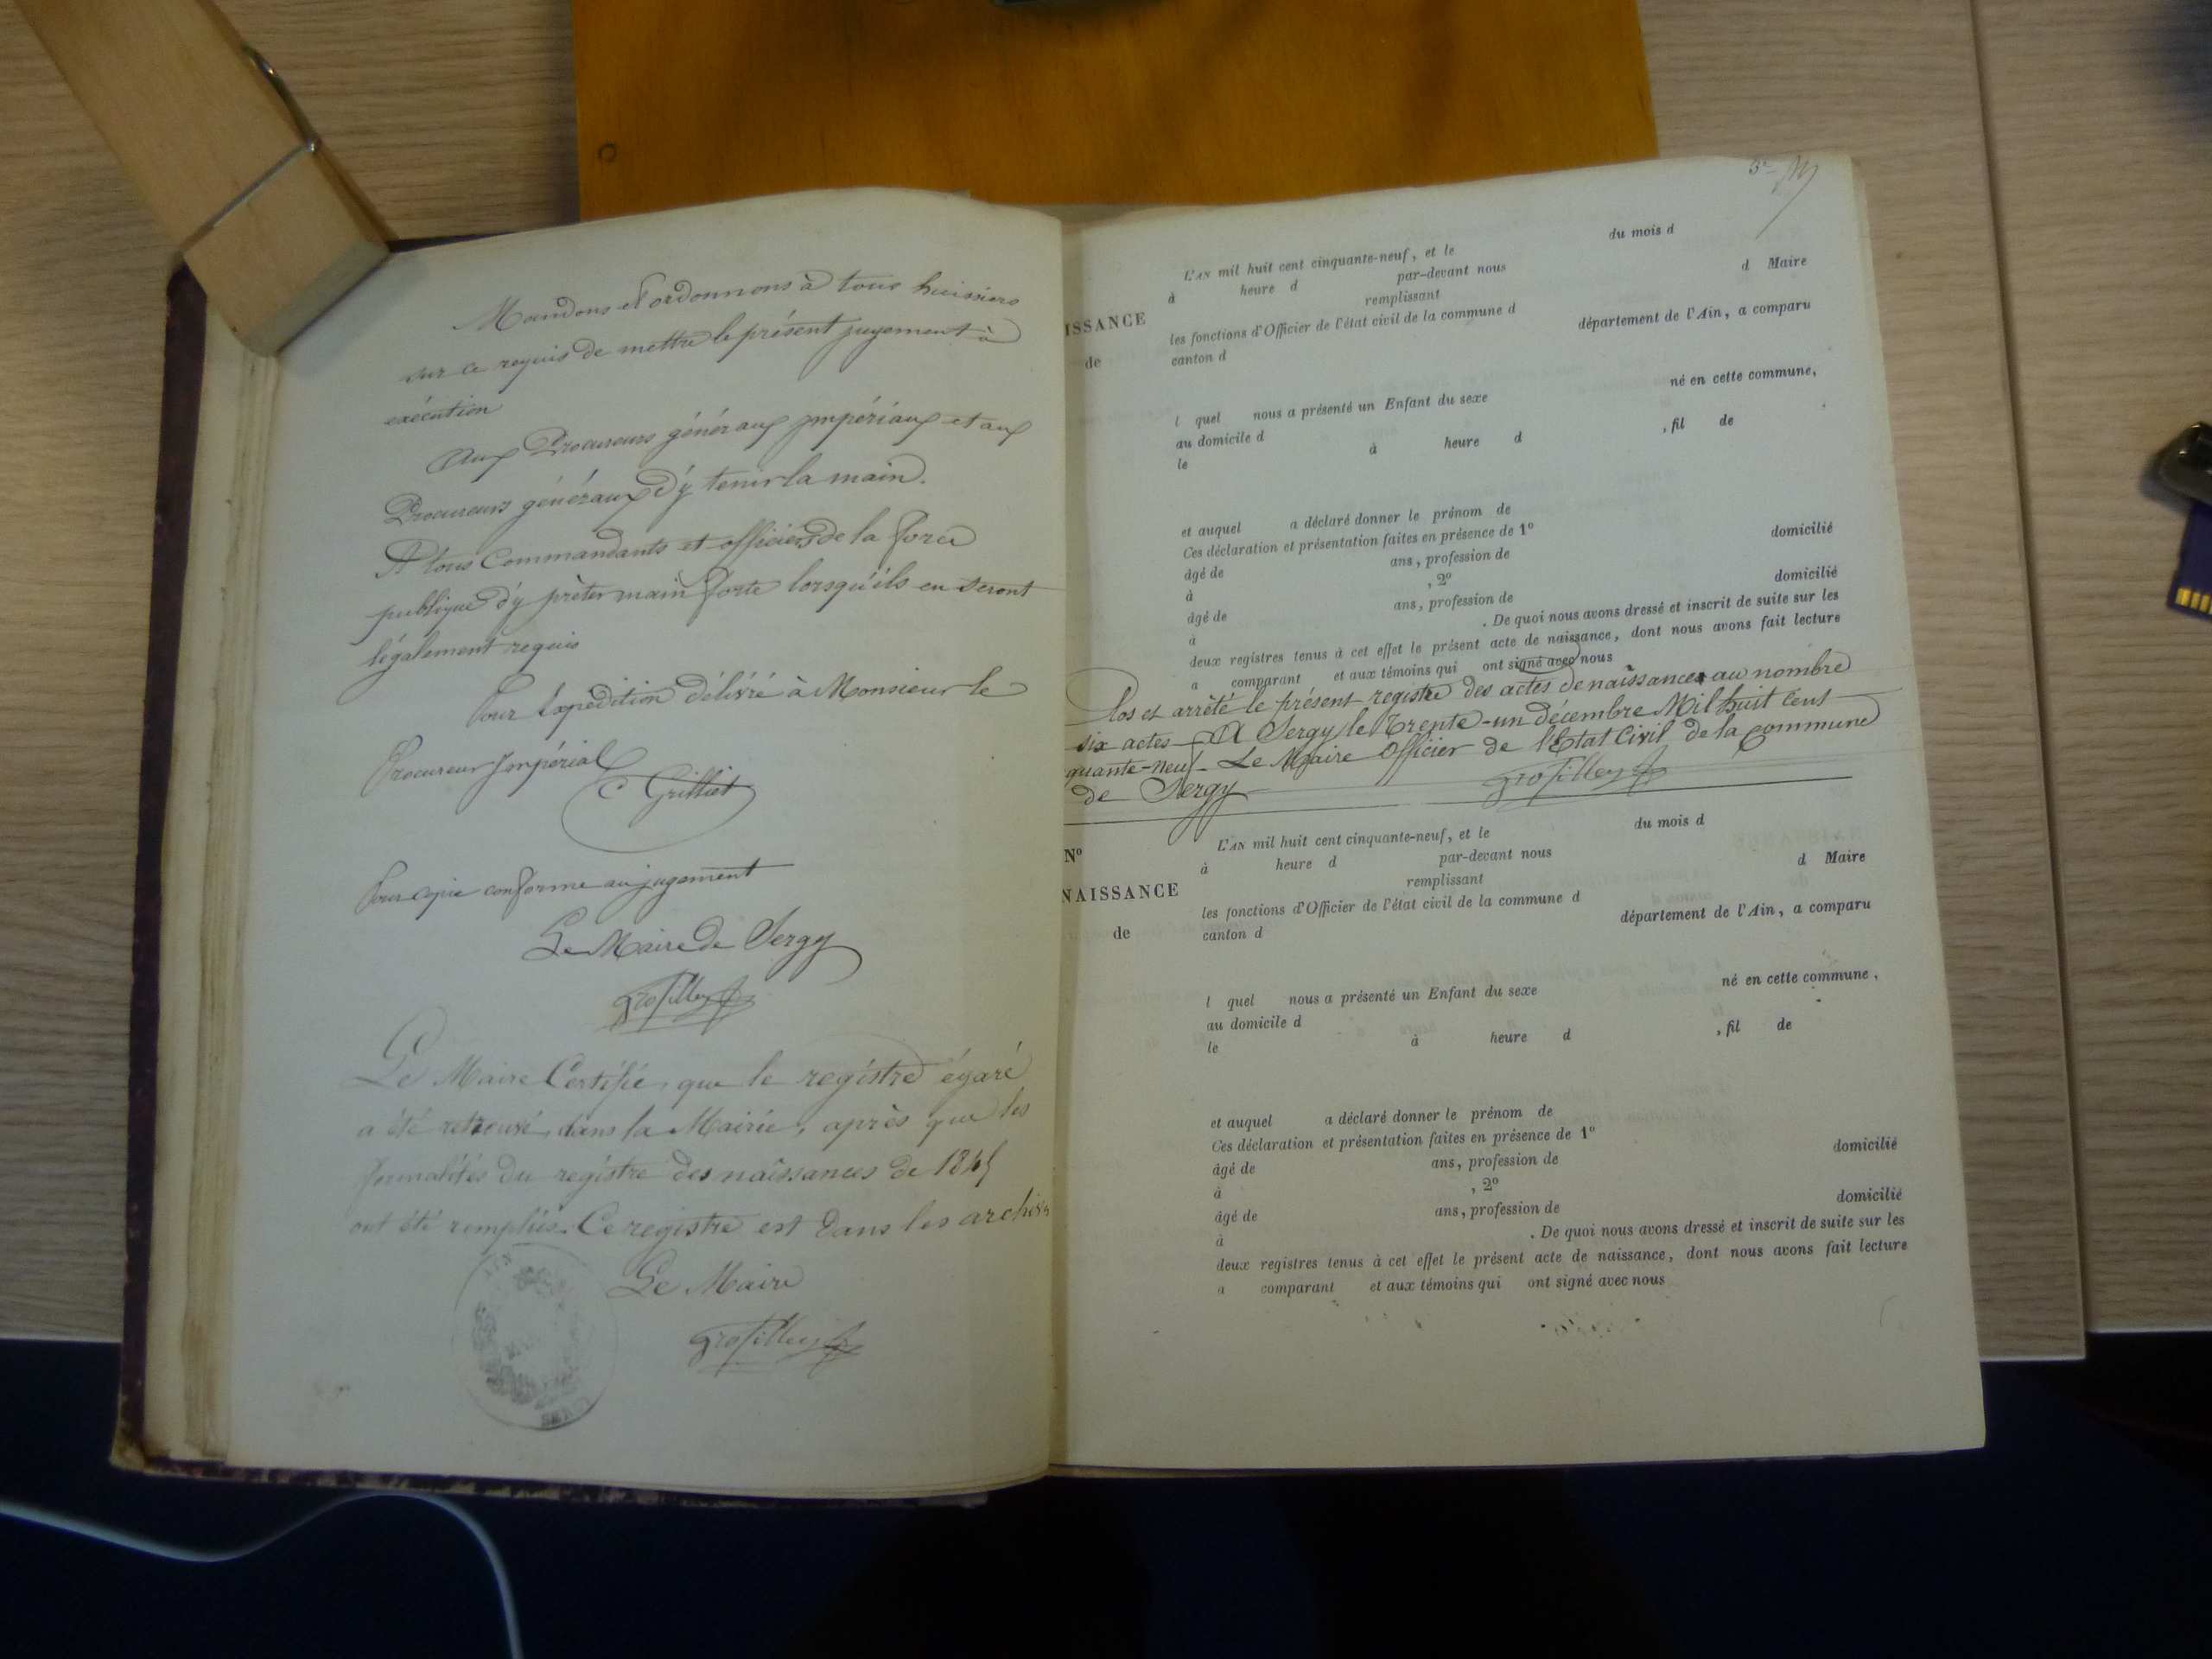 Mandons et ordonnons à tous huissiers
sur ce requis de mettre le présent jugement à
exécution
Aux Procureurs généraux impériaux et aux
Procureurs généraux d'y tenir la main.
A tous Commandants et officiers de la force
publique d'y prêter main forte lorsqu'ils en seront
légalement requis
Pour Expédition délivré à Monsieur le
Procureur Impérial
C Grilliet
Pour copie conforme au jugement
Le Maire de Sergy
Grosfilley
Le Maire Certifie, que le registre égaré
a été retrouvé, dans la Mairie, après que les
formalités du registre des naissances de 1845
ont été remplies. Ce registre est dans les archives
Le Maire
Grosfilley
AIN
SERGY
L'AN mil huit cent cinquante-neuf, et le du mois d
à heure d par-devant nous
remplissant d Maire
ISSANCE
les fonctions d'Officier de l'état civil de la commune d
de
canton d département de l'Ain, a comparu
l quel nous a présenté un Enfant du sexe né en cette commune,
au domicile d
le à heure d , fil de
et auquel a déclaré donner le prénom de
Ces déclaration et présentation faites en présence de 1º
âgé de ans, profession de domicilié
à , 2º
âgé de ans, profession de domicilié
à . De quoi nous avons dressé et inscrit de suite sur les
deux registres tenus à cet effet le présent acte de naissance, dont nous avons fait lecture
a comparant et aux témoins qui ont signé avec nous
Clos et arrêté le présent registre des actes de naissances au nombre
six actes - A Sergy le Trente-un décembre Mil huit cent
quante-neuf. Le Maire Officier de l'Etat Civil de la commune
de Sergy
Grosfilley
Nº
L'AN mil huit cent cinquante-neuf, et le du mois d
à heure d par-devant nous
remplissant d Maire
NAISSANCE
les fonctions d'Officier de l'état civil de la commune d
de
canton d département de l'Ain, a comparu
l quel nous a présenté un Enfant du sexe né en cette commune,
au domicile d
le à heure d , fil de
et auquel a déclaré donner le prénom de
Ces déclaration et présentation faites en présence de 1º
âgé de ans, profession de domicilié
à , 2º
âgé de ans, profession de domicilié
à . De quoi nous avons dressé et inscrit de suite sur les
deux registres tenus à cet effet le présent acte de naissance, dont nous avons fait lecture
a comparant et aux témoins qui ont signé avec nous